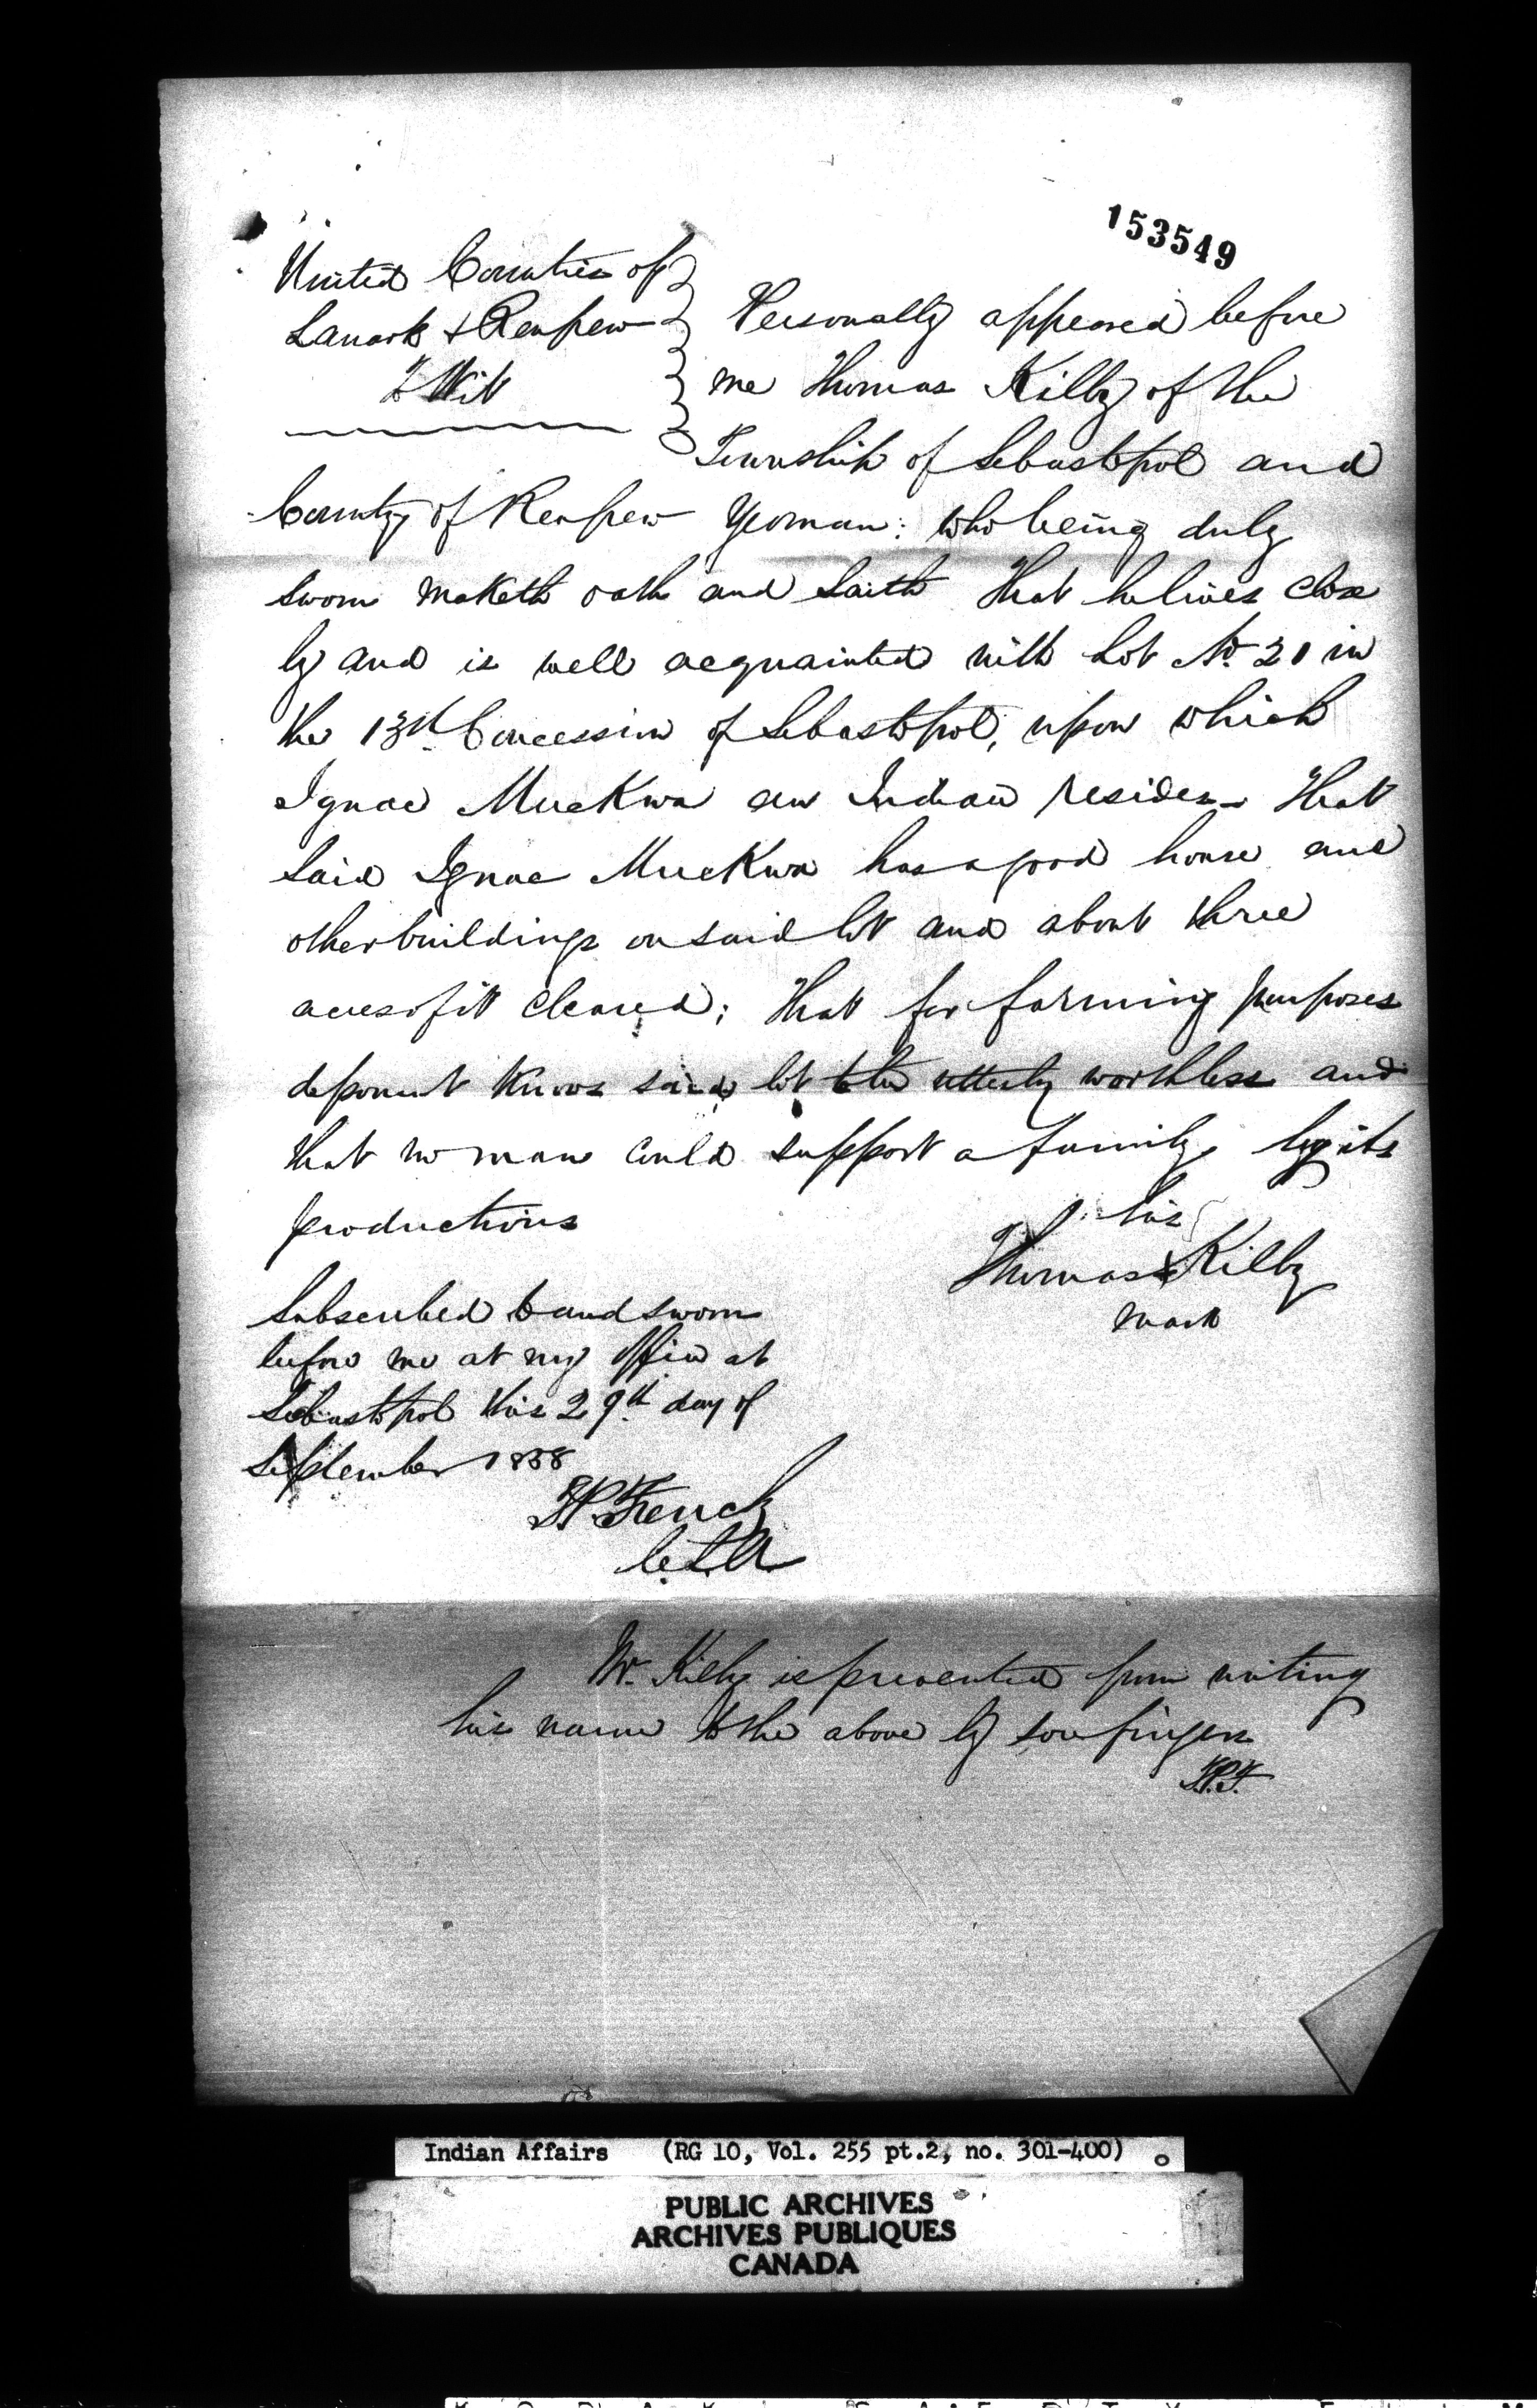 153549
United Counties of
Lanark & Renfrew
To Wit
Personally appeared before
me Thomas Kilby of the
Township of Sebastopol and
County of Renfrew Yeoman: who being duly
sworn maketh oath and saith That he lives close
by and is well acquainted with Lot No. 21 in
the 13th Concession of Sebastopol, upon which
Ignac MucKwa an Indian resides - That
said Ignac MucKwa has a good house and
other buildings on said lot and about three
acres of it cleared; That for farming purposes
deponent knows said lot to be utterly worthless and
that no man could support a family by its
productions
his
Thomas X Kilby
mark
Subscribed to and sworn
before me at my office at
Sebastopol this 29th day of
September 1858
T.P. French
C.L.A
Mr. Kilby is prevented from writing
his name to the above by sore fingers
T.P.F.
Indian Affairs (RG 10, Vol. 255 pt.2, no. 301-400)
PUBLIC ARCHIVES
ARCHIVES PUBLIQUES
CANADA